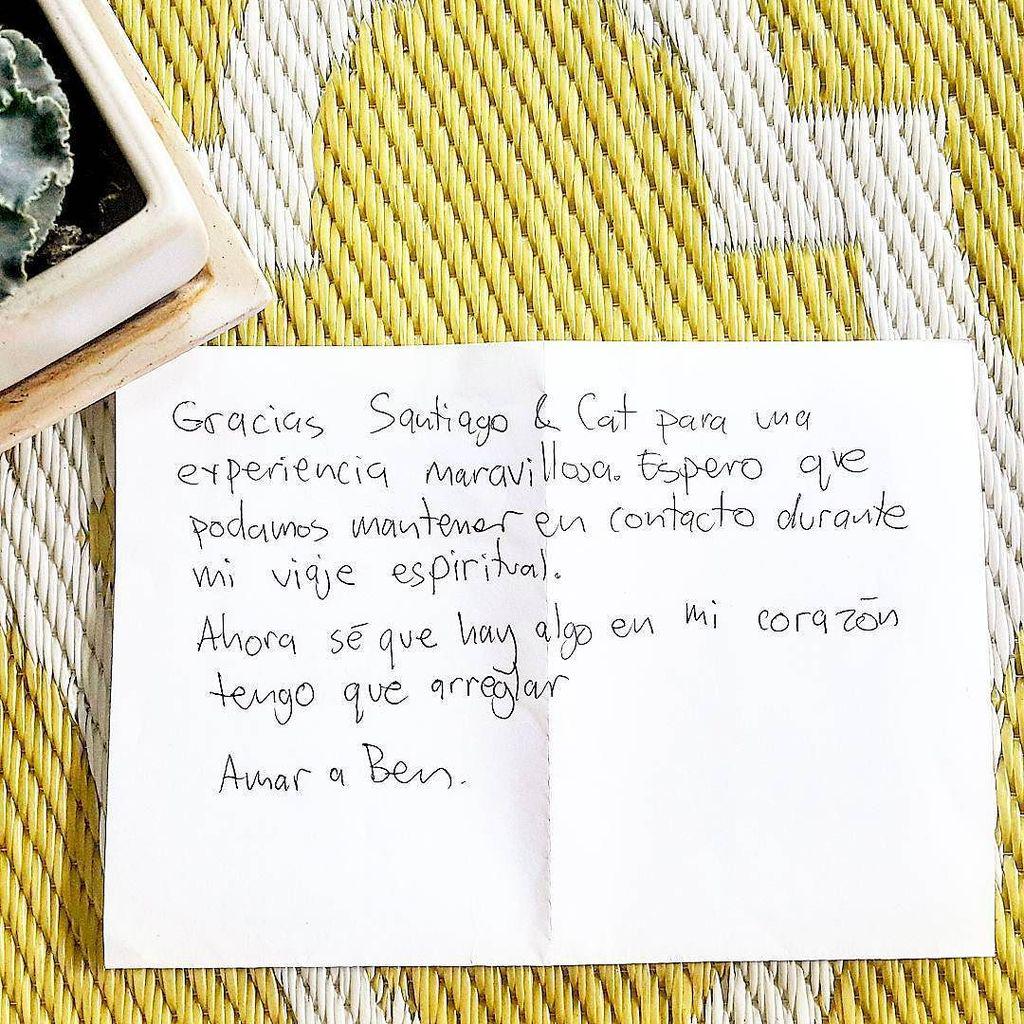 Gracias Santiago & Cat para una
experiencia maravillosa. Espero que
podamos mantener en contacto durante
mi viaje espiritual.
Ahora sé que hay algo en mi corazón
tengo que arreglar
Amar a Ben.